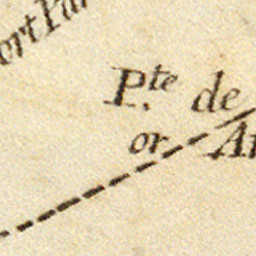 ort Par
P.te de
or An